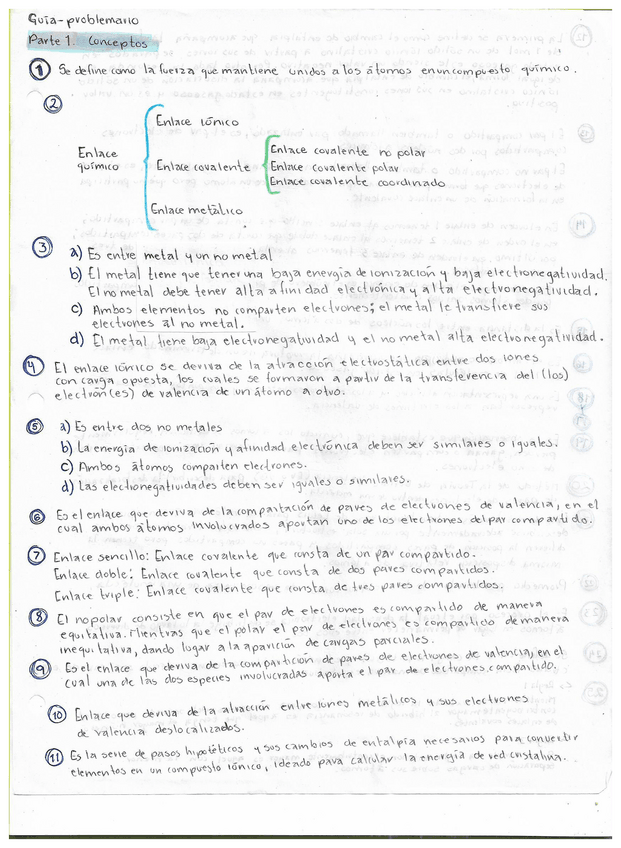 Guía-problemario
Parte 1. Conceptos
1 Se define como la fuerza que mantiene unidos a los átomos en un compuesto químico.
2
Enlace iónico
Enlace covalente no polar
Enlace
químico
Enlace covalente
Enlace covalente polar
Enlace covalente coordinado
Enlace metálico
3 a) Es entre metal y un no metal
b) El metal tiene que tener una baja energía de ionización y baja electronegatividad.
El no metal debe tener alta afinidad electrónica y alta electronegatividad.
c) Ambos elementos no comparten electrones; el metal le transfiere sus
electrones al no metal.
d) El metal tiene baja electronegatividad y el no metal alta electronegatividad.
4 El enlace iónico se deriva de la atracción electrostática entre dos iones
con carga opuesta, los cuales se formaron a partir de la transferencia del (los)
electrón(es) de valencia de un átomo a otro.
5 a) Es entre dos no metales
b) La energía de ionización y afinidad electrónica deben ser similares o iguales.
c) Ambos átomos comparten electrones.
d) Las electronegatividades deben ser iguales o similares.
6 Es el enlace que deriva de la compartación de pares de electrones de valencia, en el
cual ambos átomos involucrados aportan uno de los electrones del par compartido.
7 Enlace sencillo: Enlace covalente que consta de un par compartido.
Enlace doble: Enlace covalente que consta de dos pares compartidos.
Enlace triple: Enlace covalente que consta de tres pares compartidos.
8 El no polar consiste en que el par de electrones es compartido de manera
equitativa. Mientras que el polar el par de electrones es compartido de manera
inequitativa, dando lugar a la aparición de cargas parciales.
9 Es el enlace que deriva de la compartición de pares de electrones de valencia, en el
cual una de las dos especies involucradas aporta el par de electrones compartido.
10 Enlace que deriva de la atracción entre iones metálicos y sus electrones
de valencia deslocalizados.
11 Es la serie de pasos hipotéticos y sus cambios de entalpía necesarios para convertir
elementos en un compuesto iónico, ideado para calcular la energía de red cristalina.